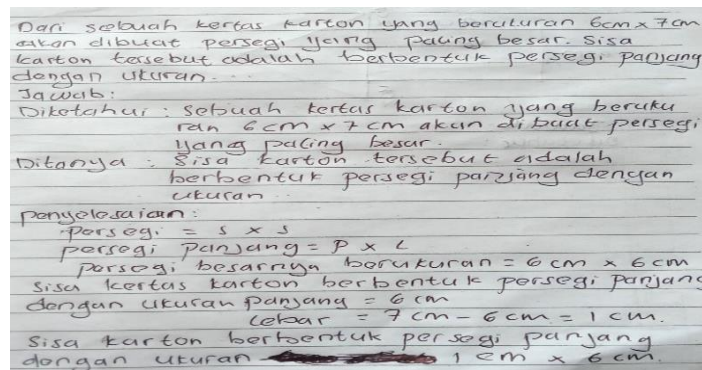 Dari sebuah kertas karton yang berukuran 6cm x 7cm
akan dibuat persegi yang paling besar. Sisa
karton tersebut adalah berbentuk persegi panjang
dengan ukuran...
Jawab:
Diketahui : sebuah kertas karton yang beruku
ran 6cm x 7cm akan dibuat persegi
yang paling besar.
Ditanya : Sisa karton tersebut adalah
berbentuk persegi panjang dengan
ukuran ..
penyelesaian :
persegi = s x s
persegi panjang = P x L
persegi besarnya berukuran = 6 cm x 6cm
Sisa kertas karton berbentuk persegi panjang
dengan ukuran panjang = 6 cm
lebar = 7 cm - 6 cm = 1 cm.
Sisa karton berbentuk persegi panjang
dengan ukuran 1 cm x 6 cm.